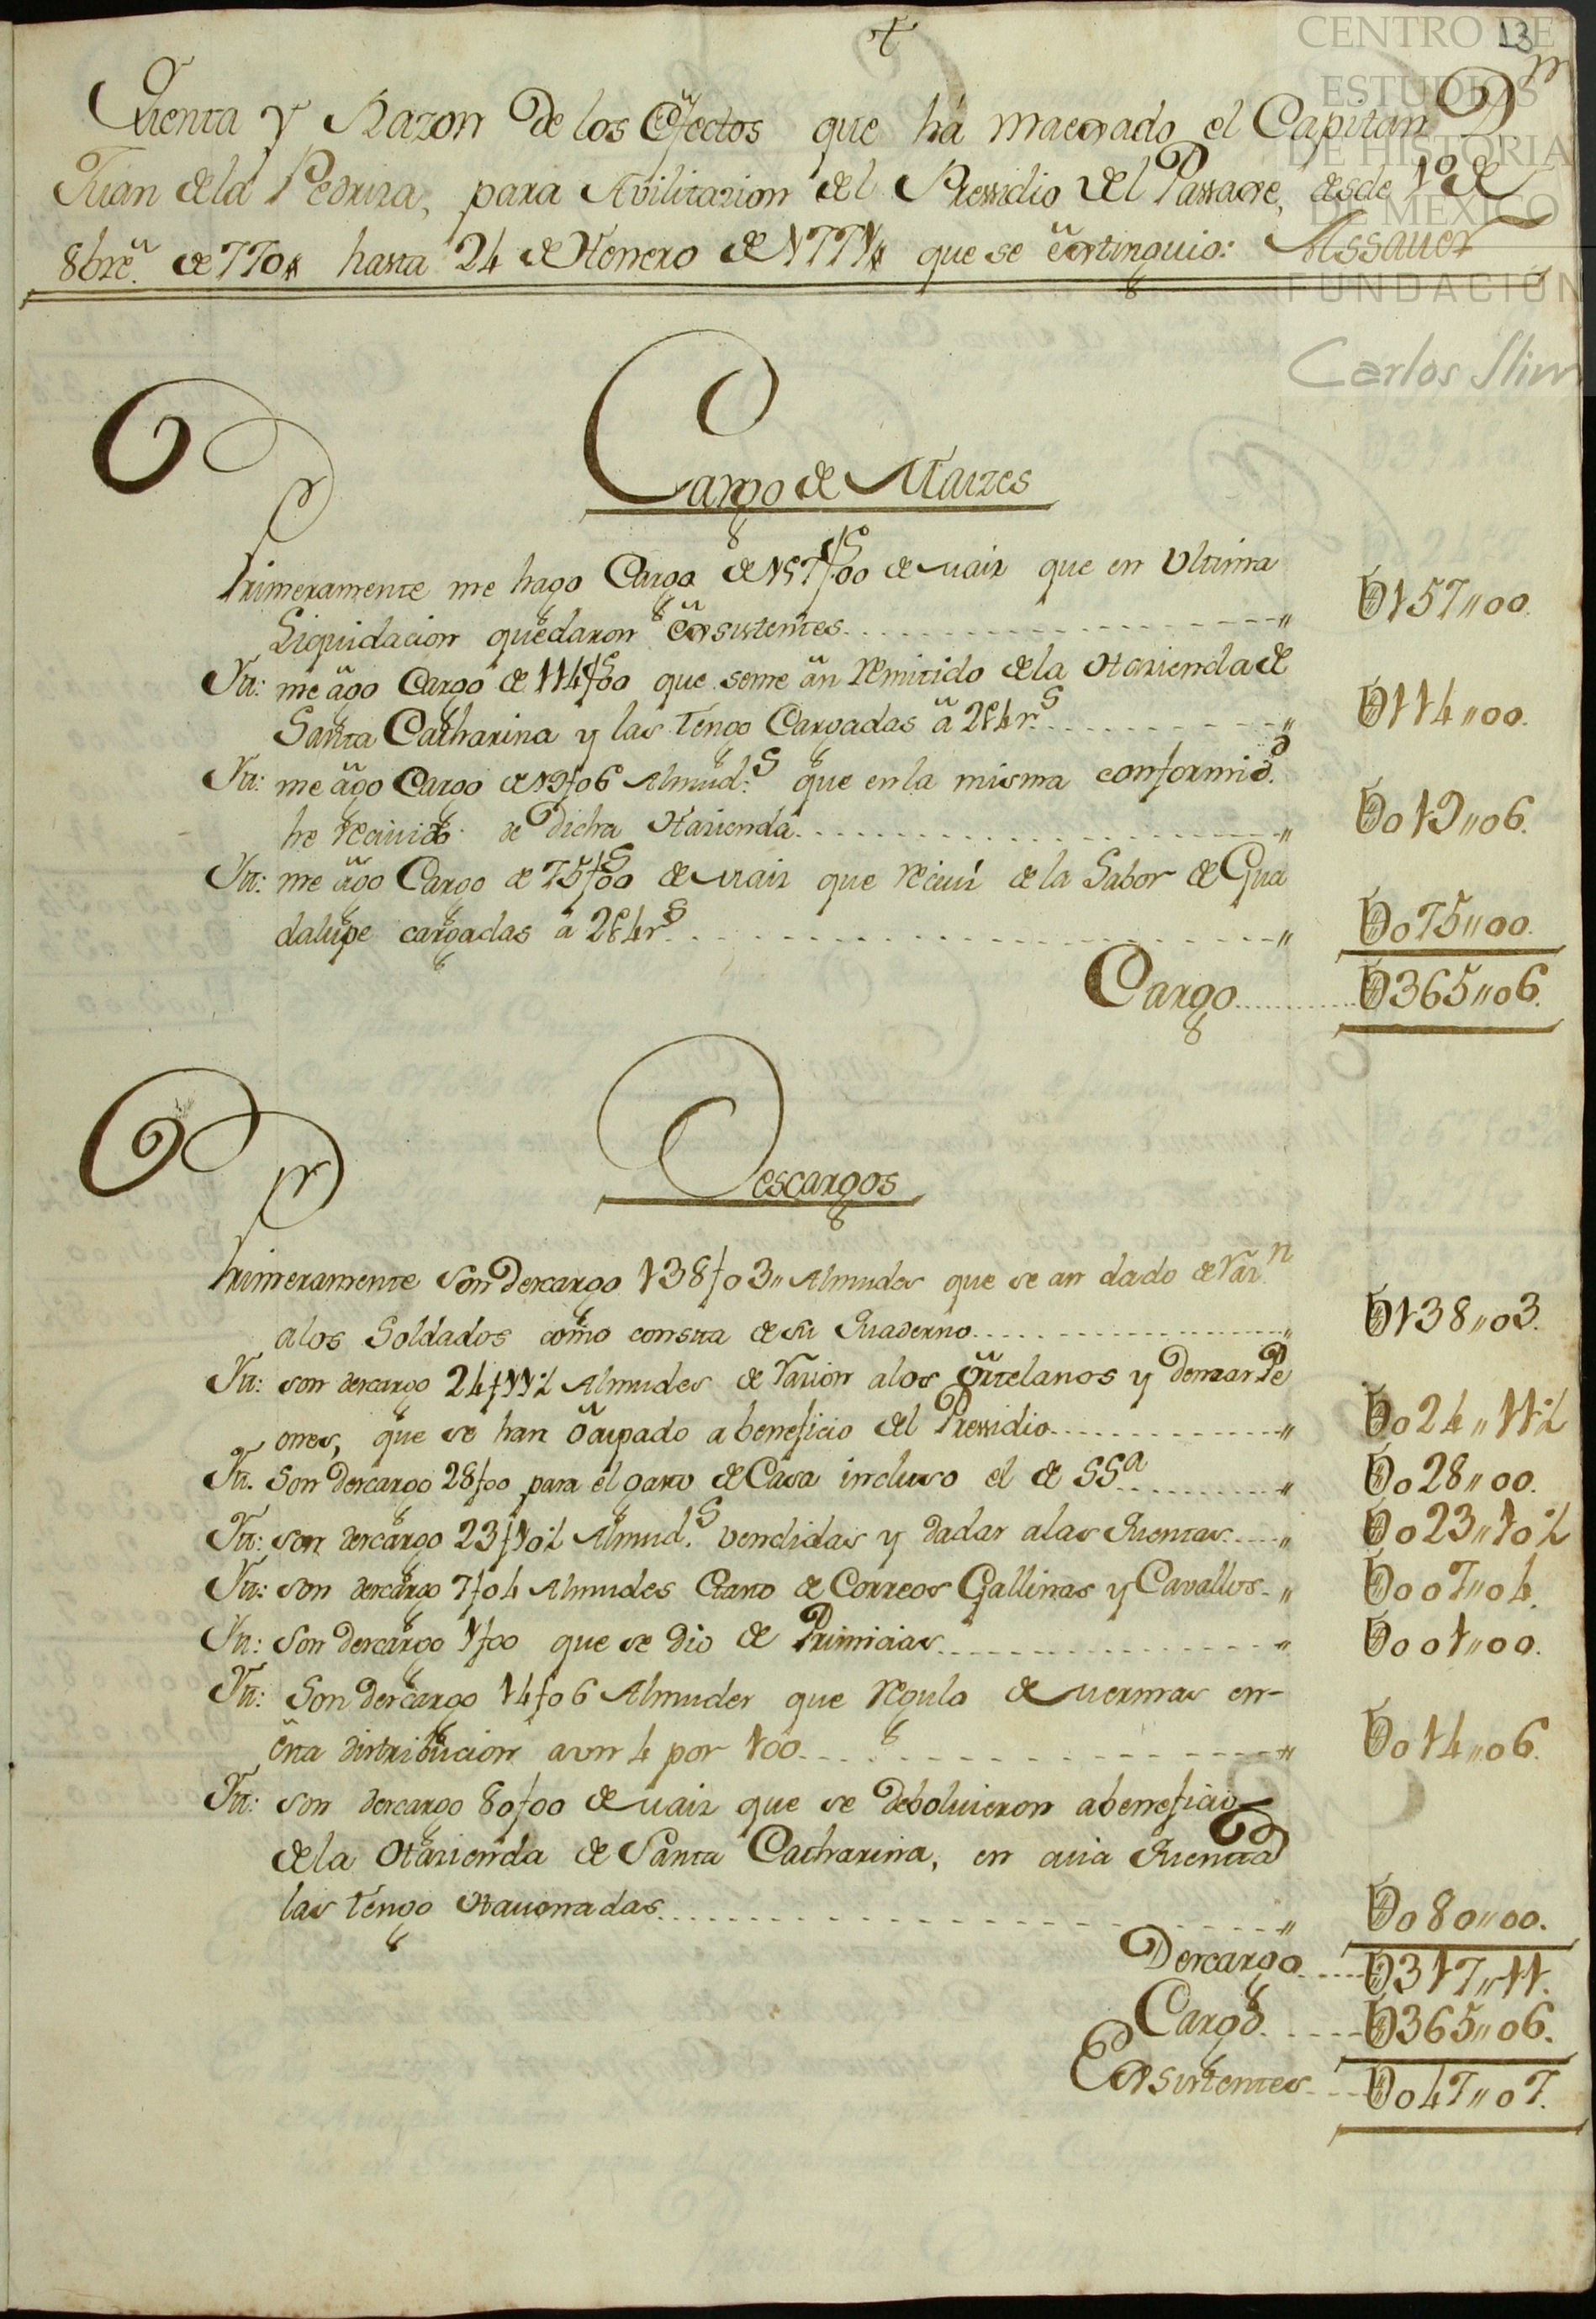 +
13
CENTRO DE
ESTUDIOS
DE HISTORIA
DE MEXICO
FUNDACIÓN
Carlos Slim
Quenta y Razon de los Efectos que há macorado el Capitan Dn
Juan dela Pedriza, para Avilitazion del Pressidio del Passage, desde 1o de
8bre. de 770„ hasta 24 de Henero de 1771„ que se extinguio: Assaver
Cargo de Maizes
Primeramente me hago Cargo de 157fs00 de maiz que en Ultima
Liquidacion quedaron exsistentes. „ 0157„00.
Yt: me ago Cargo de 114fs00 que seme an remitido dela Hazienda de
Santa Catharina y las tengo Cargadas a 2p4rs. „ 0114„00.
Yt: me ago Cargo de 19f06 Almuds. que en la misma conformid.
he recivido de dicha Hazienda. „ 0019„06.
Yt: me ago Cargo de 75fs00 de maiz que reciuí de la Labor de Gua
dalupe cargadas a 2p4rs. „ 0075„00.
Cargo 0365„06.
Descargos
Primeramente son Descargo 138f03„ Almudes que se an dado de Razn.
alos Soldados como consta de su Quaderno „ 0138„03.
Yt: son descargo 24f11½ Almudes de razion alos ortelanos y demas Pe
ones, que se han ocupado a beneficio del Pressidio „ 0024„11½
Yt. Son Descargo 28f00 para el gasto de Casa incluso el de SSa „ 0028„00.
Yt: son descargo 23f10½ Almuds. vendidas y dadas alas Quentas. „ 0023„10½
Yt: son descargo 7f04 Almudes Gasto de Correos Gallinas y Cavallos. „ 0007„04.
Yt: Son Descargo 1f00 que se dio de Primicias „ 0001„00.
Yt: Son Descargo 14f06 Almudes que regulo de mermas en-
esta distribucion a un 4 por 100 „ 0014„06.
Yt: son descargo 80f00 de maiz que se debolvieron a beneficio
de la Hazienda de Santa Catharina, en cuia Quenta
las tengo Havonadas „ 0080„00.
Descargo 0317„11.
Cargo 0365„06.
Exsistentes 0047„07.